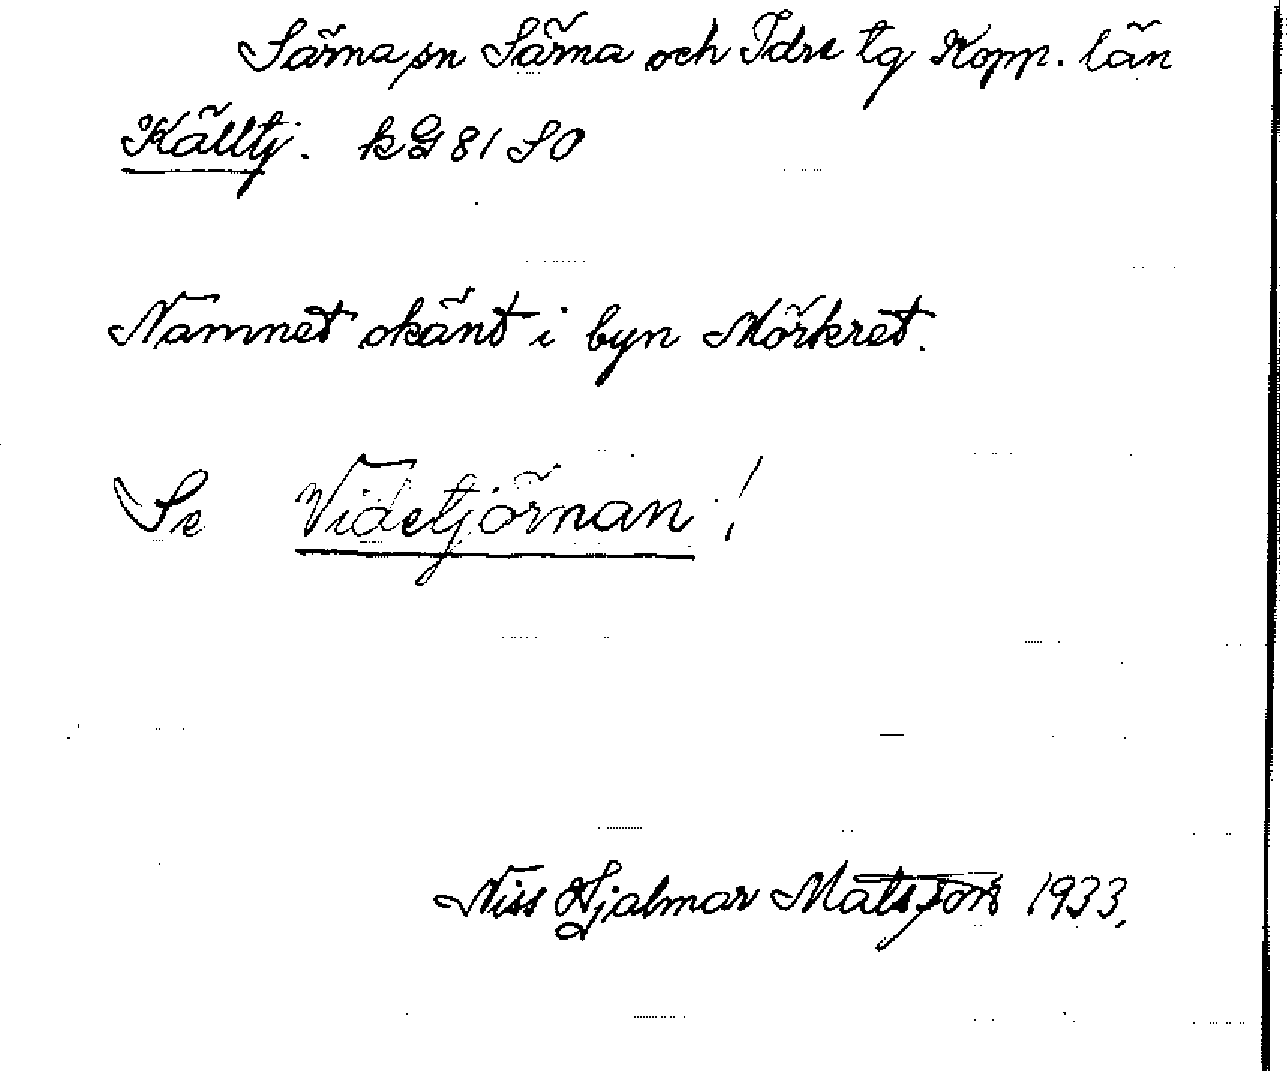 Särna sn Särna och Idre tg Kopp. län
Källtj. kG 81 SO
Namnet okänt i byn Mörkret.
Se Videtjörnan!
Niss Hjalmar Matsson 1933.